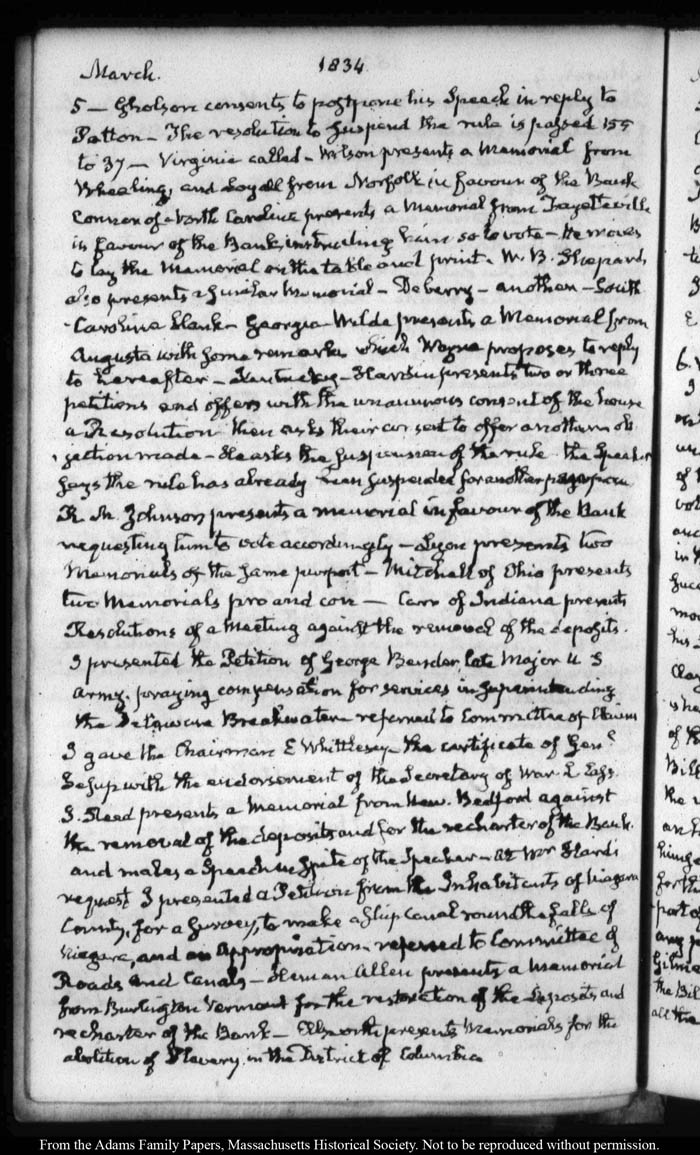 March. 1834
5 — Gholson consents to postpone his Speech in reply to
Patton — The resolution to suspend the rule is passed 155
to 37 — Virginia called — Wilson presents a Memorial from
Wheeling, and Loyall from Norfolk in favour of the Bank
Connor of North Carolina presents a Memorial from Fayetteville
in favour of the Bank, instructing him so to vote — He moves
to lay the Memorial on the table and print — W. B. Shepard,
also presents a similar Memorial — Deberry — another — South
Carolina blank — Georgia — Wilde presents a Memorial from
Augusta with some remarks which Wayne proposes to reply
to hereafter — Kentucky — Hardin presents two or three
petitions and offers with the unanimous consent of the house
a Resolution then asks their consent to offer another ob
jection made — He asks the suspension of the rule the Speaker
says the rule has already been suspended for another purpose
R. M. Johnson presents a memorial in favour of the Bank
requesting him to vote accordingly — Lyon presents two
Memorials of the same purport — Mitchell of Ohio presents
two Memorials pro and con — Carr of Indiana presents
Resolutions of a Meeting against the removal of the deposits.
I presented the Petition of George Bender, late Major U S
Army, praying compensation for services in superintending
the Delaware Breakwater referred to Committee of Claims
I gave the Chairman E Whittlesey the certificate of Genl
Jesup with the endorsement of the Secretary of War L Cass.
J. Reed presents a Memorial from New Bedford against
the removal of the deposits and for the recharter of the Bank.
and makes a Speech in spite of the Speaker — at Mr Hard's
request I presented a Petition from the Inhabitants of Niagara
County, for a Survey, to make a Ship Canal round the falls of
Niagara, and an Appropriation — referred to Committee of
Roads and Canals — Heman Allen presents a Memorial
from Burlington Vermont for the restoration of the Deposits and
recharter of the Bank — Ellsworth presents Memorials for the
abolition of Slavery in the District of Columbia
From the Adams Family Papers, Massachusetts Historical Society. Not to be reproduced without permission.